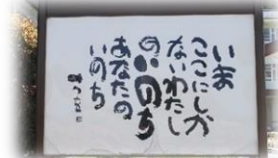 いま
ここにしか
ないわたし
のいのち
あなたの
いのち